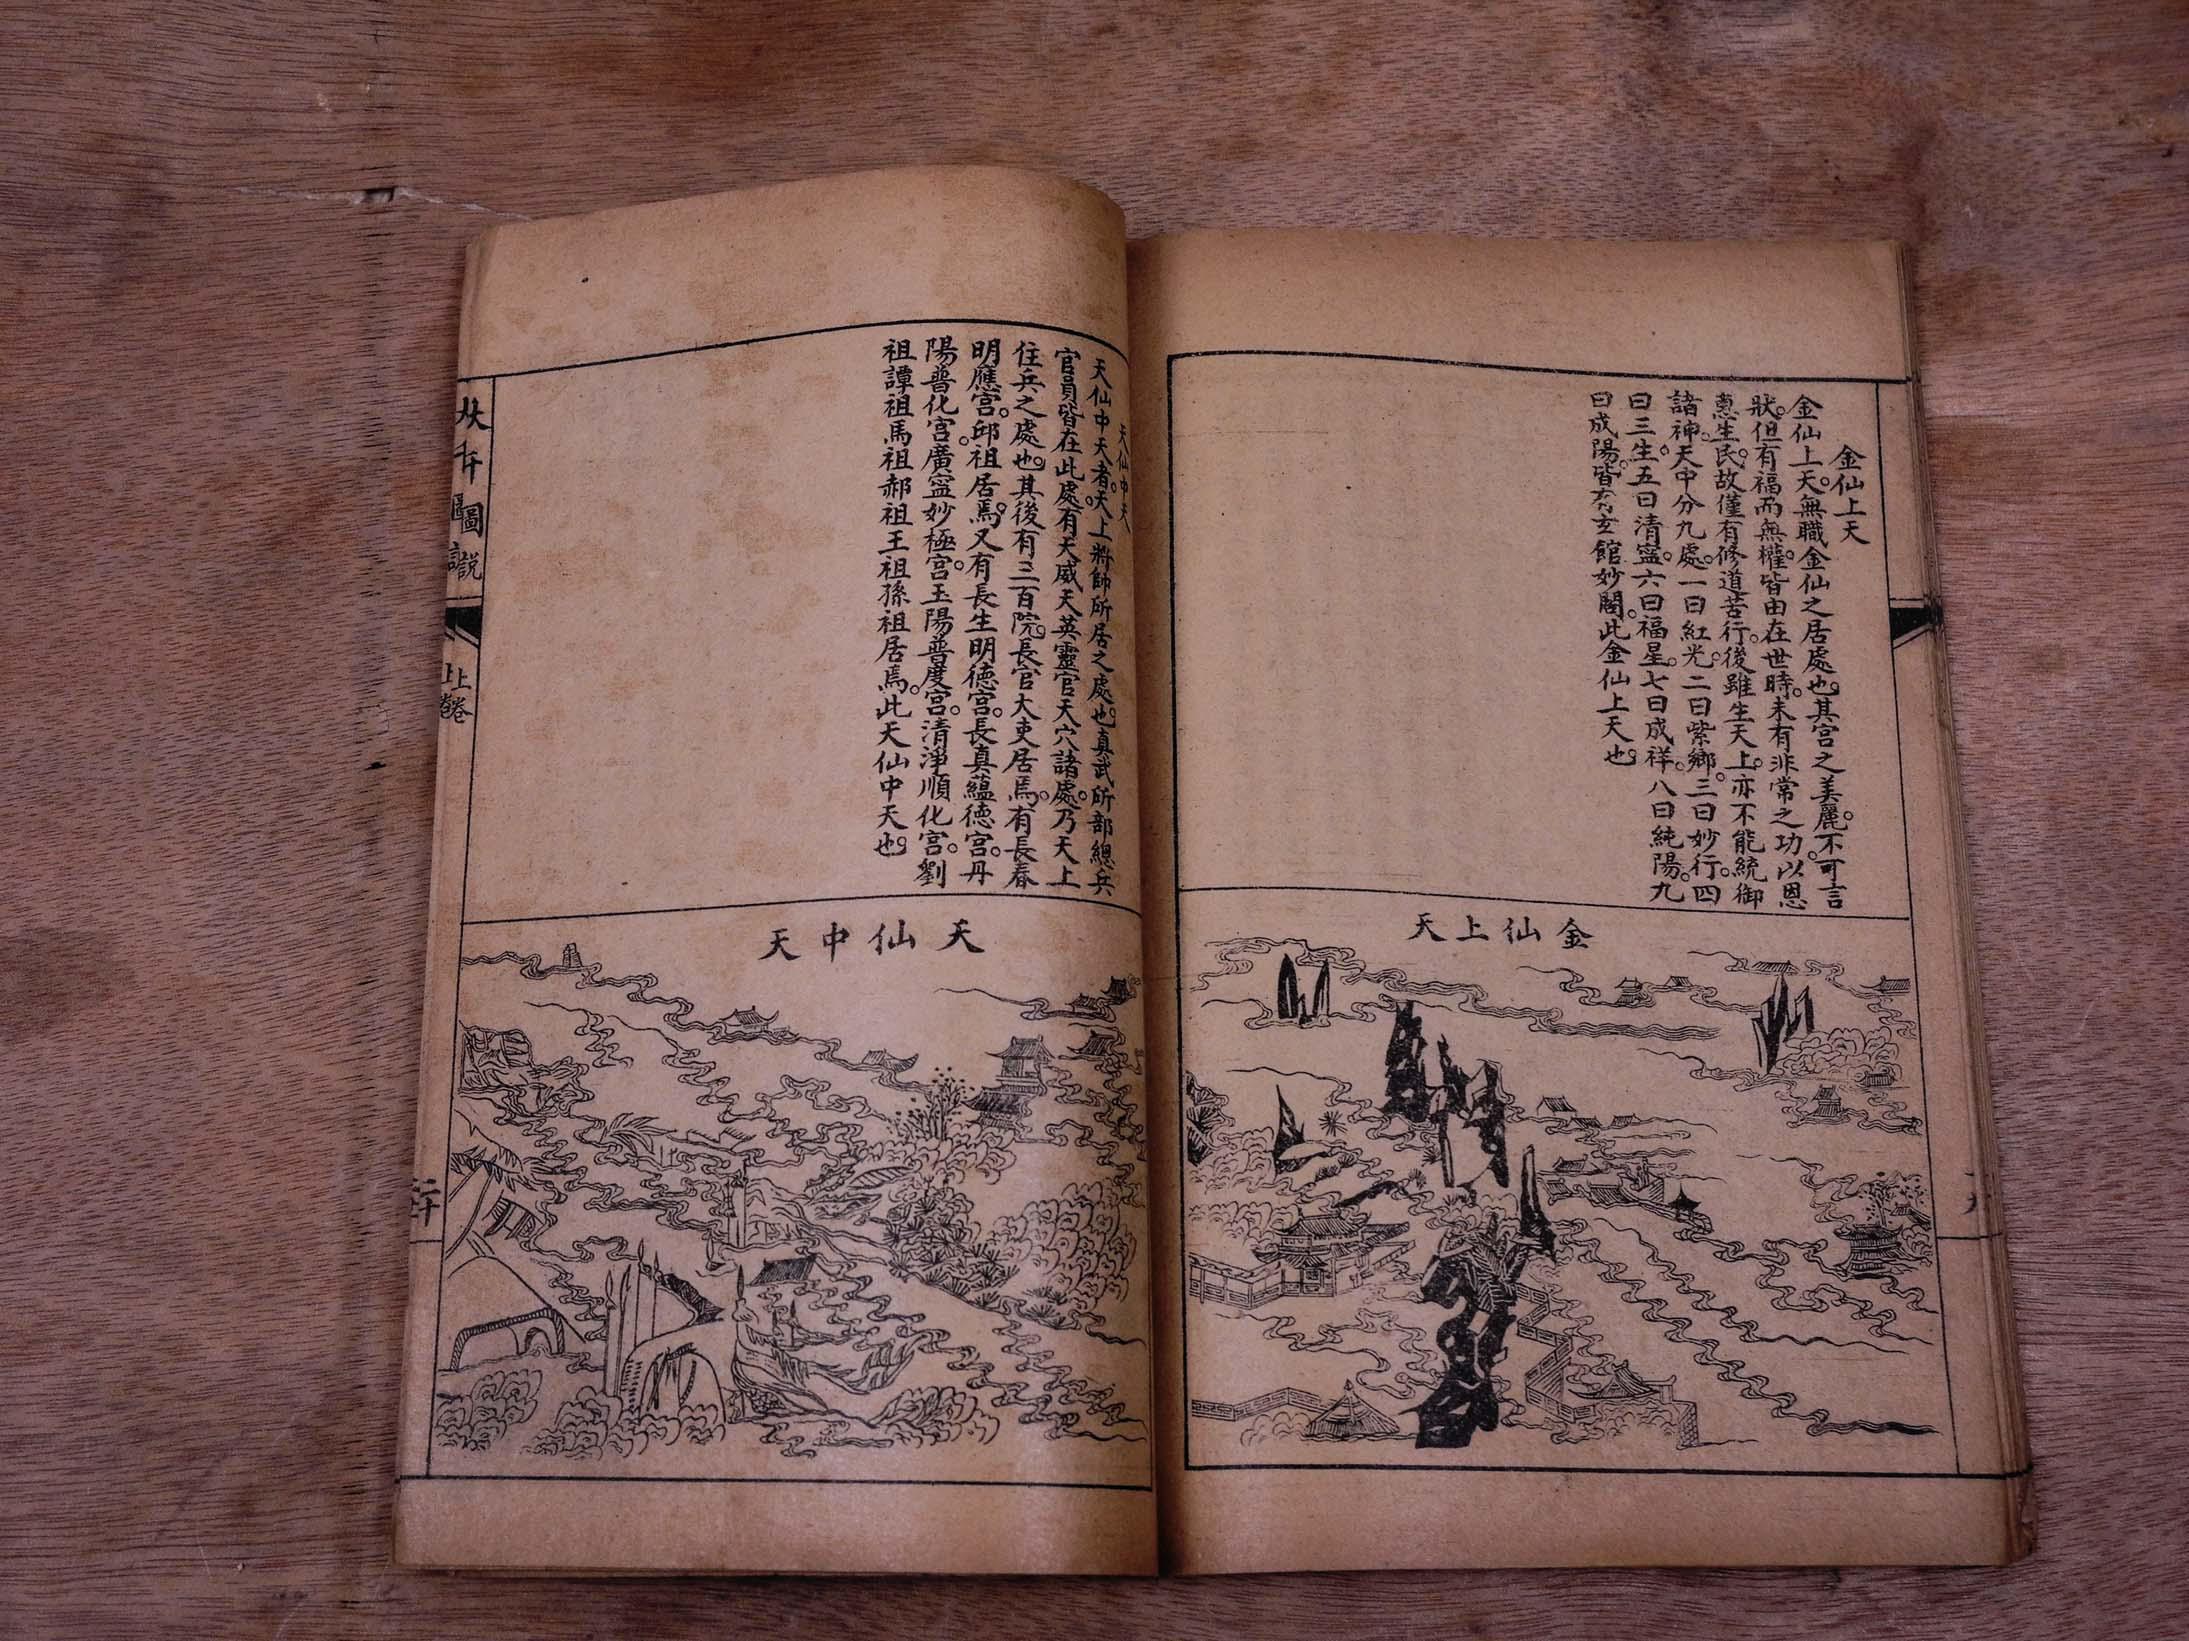 金仙上天
金仙上天。無職金仙之居處也。其宮之美麗。不可言
狀。但有福而無權。皆由在世時。未有非常之功。以恩
惠生民。故僅有修道苦行。後雖生天上。亦不能統御
諸神。天中分九處。一曰紅光。二曰紫鄉。三曰妙行。四
曰三生。五曰清寧。六曰福星。七曰成祥。八曰純陽。九
曰成陽。皆有玄館妙閣。此金仙上天也。
金仙上天
天仙中天
天仙中天者。天上將帥所居之處也。真武所部總兵
官員皆在此處。有天威天英靈官天穴諸處。乃天上
住兵之處也。其後有三百院。長官大吏居焉。有長春
明應宮。邱祖居焉。又有長生明德宮。長真蘊德宮。丹
陽普化宮。廣寧妙極宮。玉陽普度宮。清淨順化宮。劉
祖譚祖馬祖郝祖王祖孫祖居焉。此天仙中天也。
天仙中天
圖說
上卷